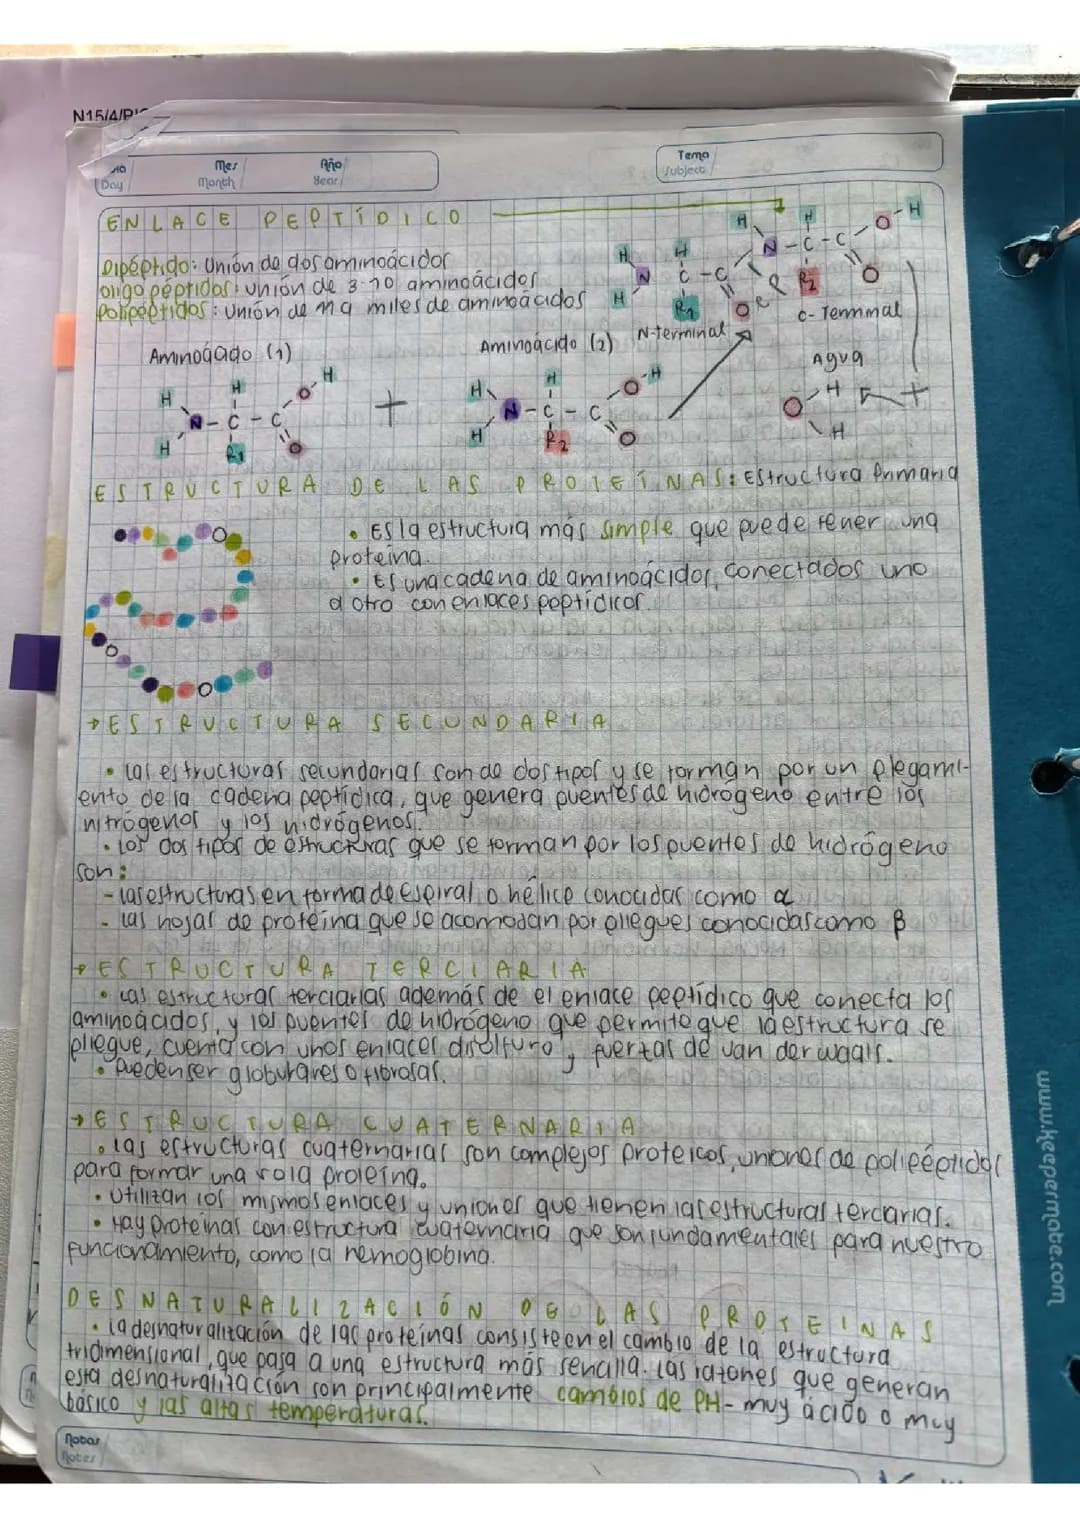 N15/4/
Day
Mes
Month
Año
Year
Tema
Subject
ENLACE PEPTÍDICO
Dipéptido: Unión de dos aminoácidos
oligopéptidos: unión de 3-10 aminoácidos
Polipéptidos: Unión de miles de aminoácidos
N-terminal
C-Terminal
Aminoácido (1)
Aminoácido (2)
Agua
H
H
N - C - C
H
R1
O
O - H
+
H
H
N - C - C
H
R2
O
O - H
H
H
N
H
C - C
R1
O
H
N - C - C
H
R2
O
O - H
E P
+
O
H
H
ESTRUCTURA DE LAS PROTEÍNAS: Estructura Primaria
• Es la estructura más simple que puede tener una
proteína.
• Es una cadena de aminoácidos, conectados uno
a otro con enlaces peptídicos.
→ ESTRUCTURA SECUNDARIA
• Las estructuras secundarias son de dos tipos y se forman por un plegami-
ento de la cadena peptídica, que genera puentes de hidrógeno entre los
nitrógenos y los hidrógenos.
• Los dos tipos de estructuras que se forman por los puentes de hidrógeno
son:
- las estructuras en forma de espiral o hélice conocidas como α
- las hojas de proteína que se acomodan por pliegues conocidas como β
→ ESTRUCTURA TERCIARIA
• Las estructuras terciarias además de el enlace peptídico que conecta los
aminoácidos, y los puentes de hidrógeno que permite que la estructura se
pliegue, cuenta con unos enlaces disulfuro y fuerzas de van der waals.
• Pueden ser globulares o fibrosas.
→ ESTRUCTURA CUATERNARIA
• Las estructuras cuaternarias son complejos proteicos, uniones de polipéptidos
para formar una sola proteína.
• Utilizan los mismos enlaces y uniones que tienen las estructuras tercarias.
• Hay proteínas con estructura cuaternaria que son fundamentales para nuestro
funcionamiento, como la hemoglobina.
DESNATURALIZACIÓN DE LAS PROTEINAS
• La desnaturalización de las proteínas consiste en el cambio de la estructura
tridimensional, que pasa a una estructura más sencilla. Las razones que generan
esta desnaturalización son principalmente cambios de PH - muy ácido o muy
básico y las altas temperaturas.
Notas
Notes
www.keepermate.com